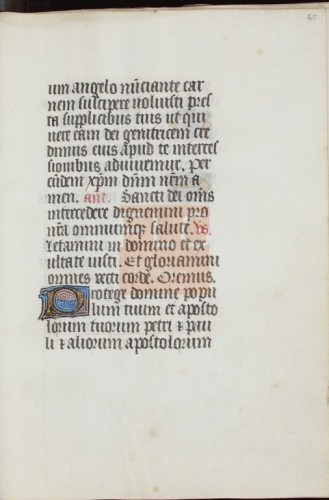 65
um angelo nũciante car
nem suscipere voluisti pres
ta supplicibus tuis ut qui
vere eam dei genitricem cre
dimus eius apud te interces
sionibus adiuvemur. Per
eũdem xp̃m dñm nr̃m a
men. añt. Sancti dei om̃s
intercedere dignemini pro
nr̃a omniumq; salute. Vs.
Letamini in domino et ex
ultate iusti. Et gloriamini
omnes recti corde. Oremus.
Protege domine popu
lum tuum et aposto
lorum tuorum petri ⁊ pau
li ⁊ aliorum apostolorum